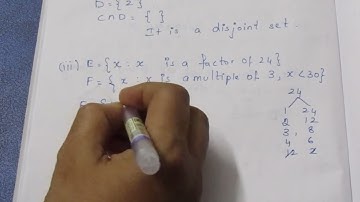 D = {2}
C∩D = { }
It is a disjoint set.
(iii) E = {x : x is a factor of 24}
F = {x : x is a multiple of 3, x < 30}
24
1 24
2 12
3, 8
4 6